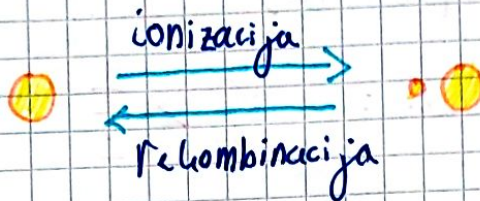 ionizacija
rekombinacija